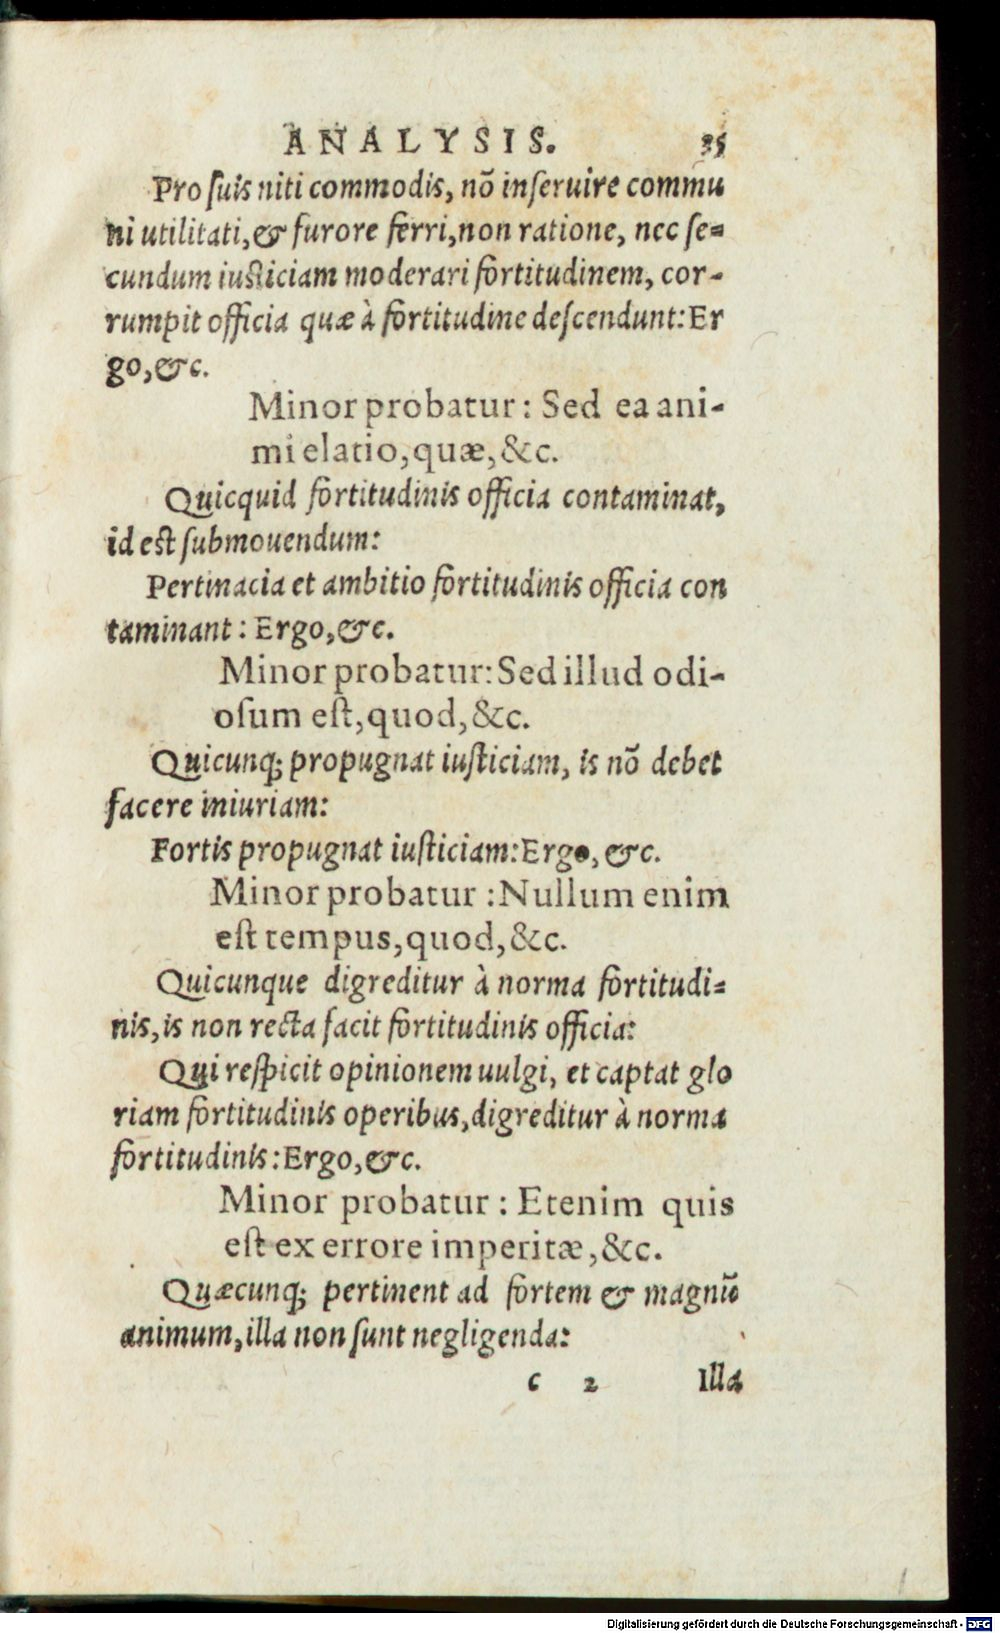 ANALYSIS. 35
Pro ſuis niti commodis, nō inſeruire commu
ni utilitati, & furore ferri, non ratione, nec ſe=
cundum iuſticiam moderari fortitudinem, cor-
rumpit officia quæ à fortitudine deſcendunt: Er
go, &c.
Minor probatur: Sed ea ani-
mi elatio, quæ, &c.
Quicquid fortitudinis officia contaminat,
id eſt ſubmouendum:
Pertinacia et ambitio fortitudinis officia con
taminant: Ergo, &c.
Minor probatur: Sed illud odi-
oſum eſt, quod, &c.
Quicunq; propugnat iuſticiam, is nō debet
facere iniuriam:
Fortis propugnat iuſticiam: Ergo, &c.
Minor probatur: Nullum enim
eſt tempus, quod, &c.
Quicunque digreditur à norma fortitudi=
nis, is non recta facit fortitudinis officia:
Qui reſpicit opinionem uulgi, et captat glo
riam fortitudinis operibus, digreditur à norma
fortitudinis: Ergo, &c.
Minor probatur: Etenim quis
eſt ex errore imperitæ, &c.
Quæcunq; pertinent ad fortem & magnū
animum, illa non ſunt negligenda:
c 2 Illa
Digitalisierung gefördert durch die Deutsche Forschungsgemeinschaft - DFG